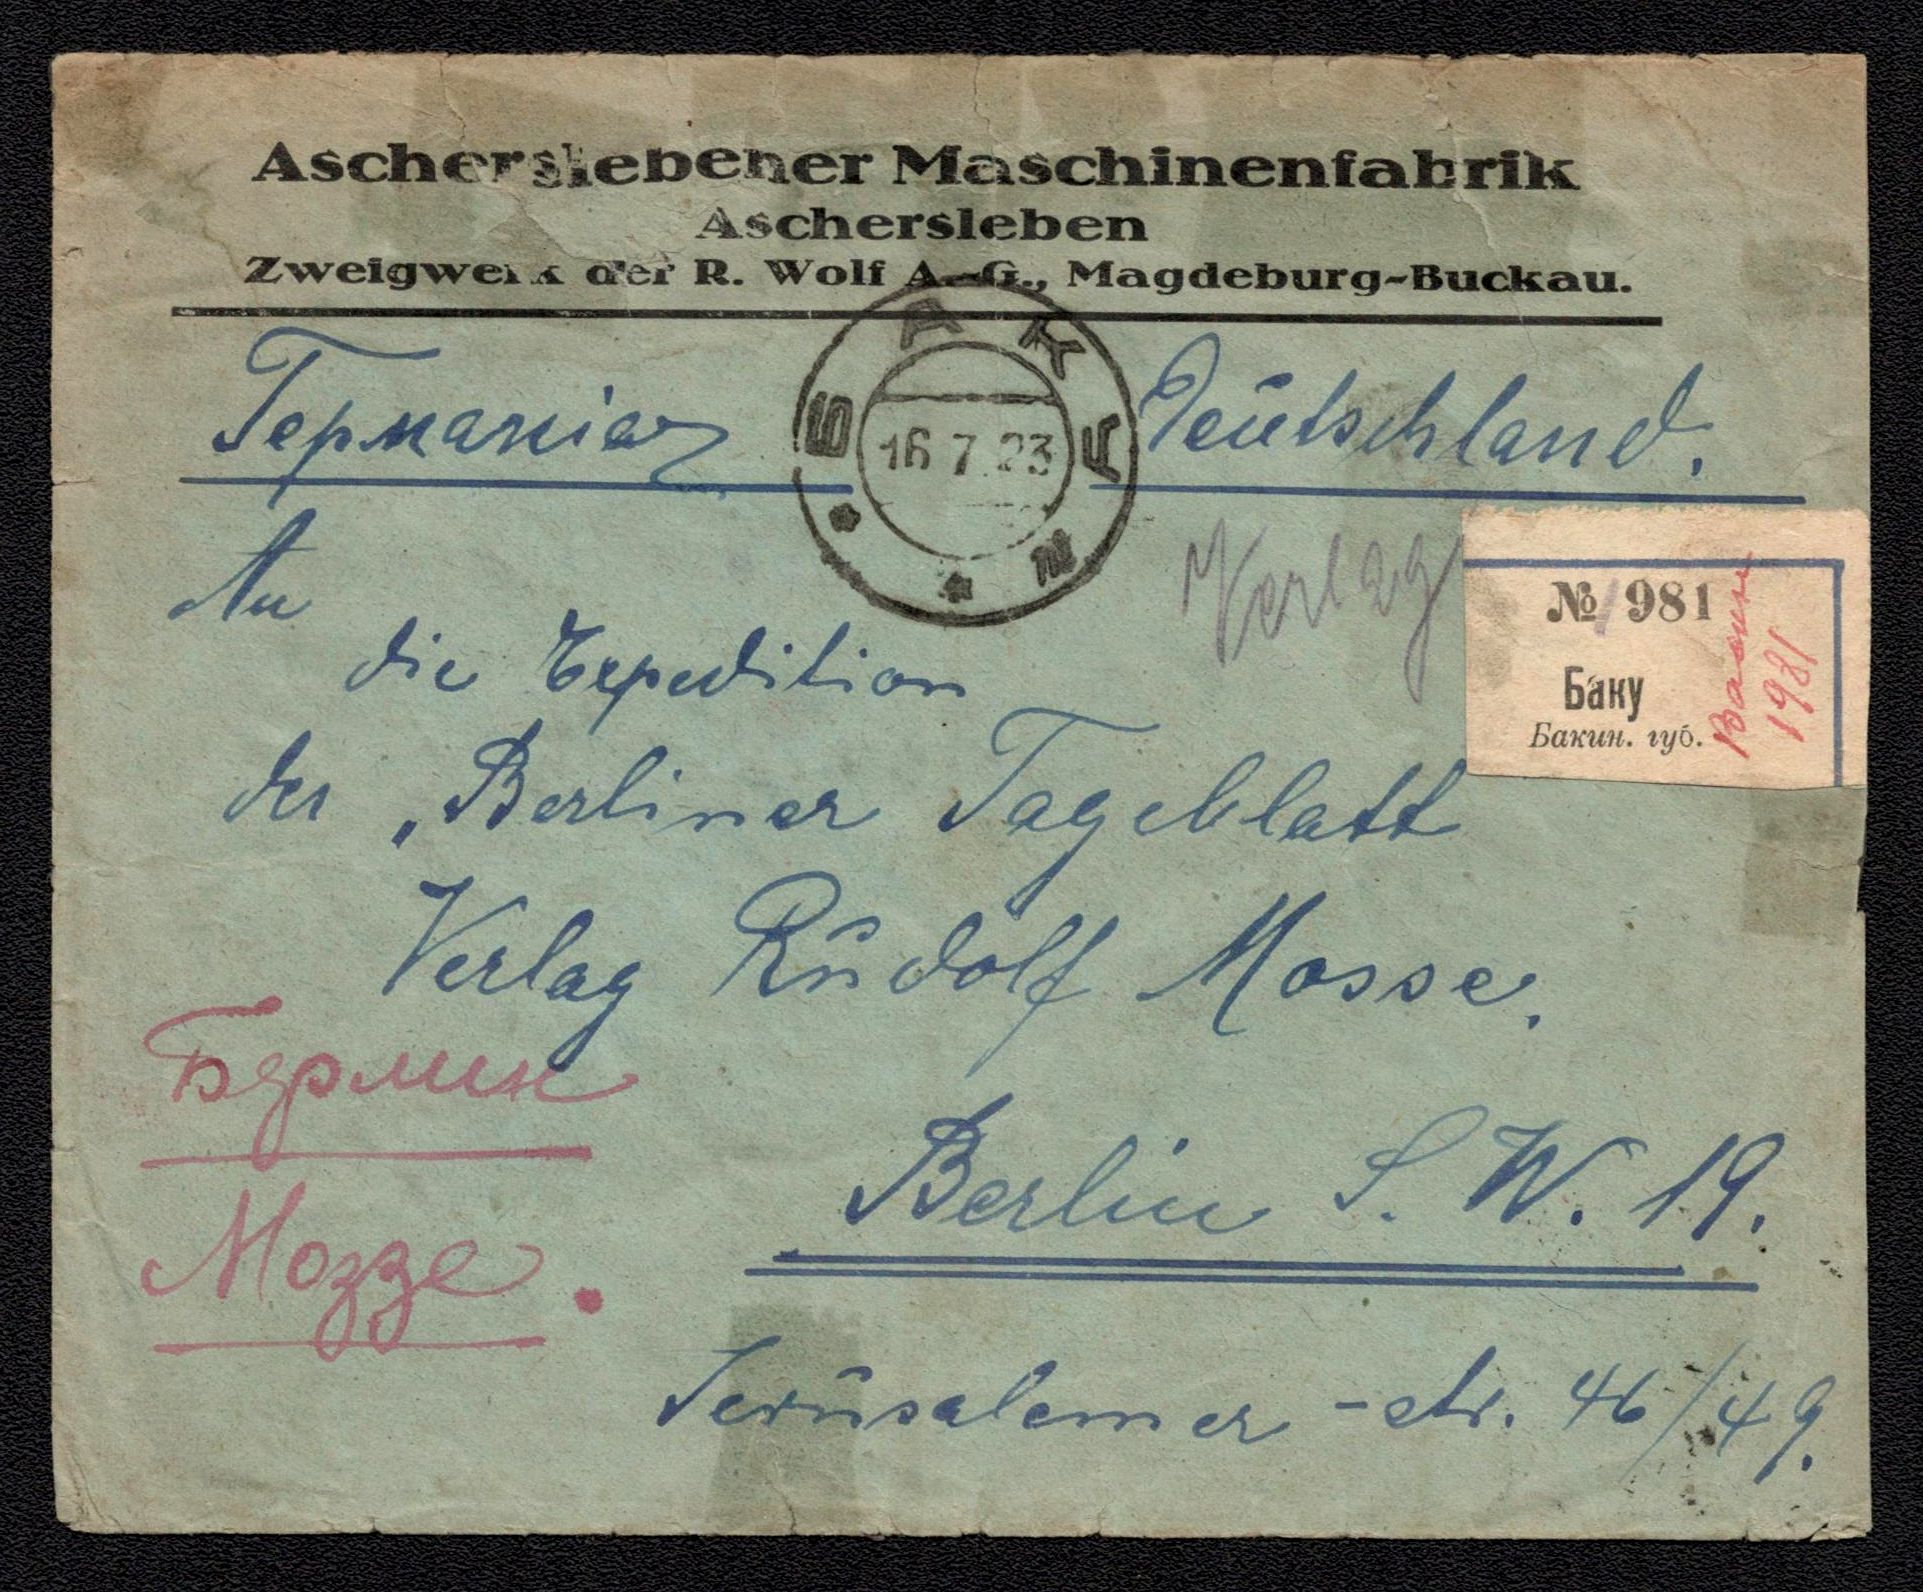 Ascherslebener Maschinenfabrik
Aschersleben
Zweigwerk der R. Wolf A.-G., Magdeburg-Buckau.
Германия Deutschland.
БАКУ
16 7 23
Verlag
An
№ 1981
die Expedition
Баку
Бакин. губ.
1981
der „Berliner Tageblatt
Verlag Rudolf Mosse.
Берлин
Berlin S. W. 19.
Моззе.
Jerusalemer-str. 46/49.